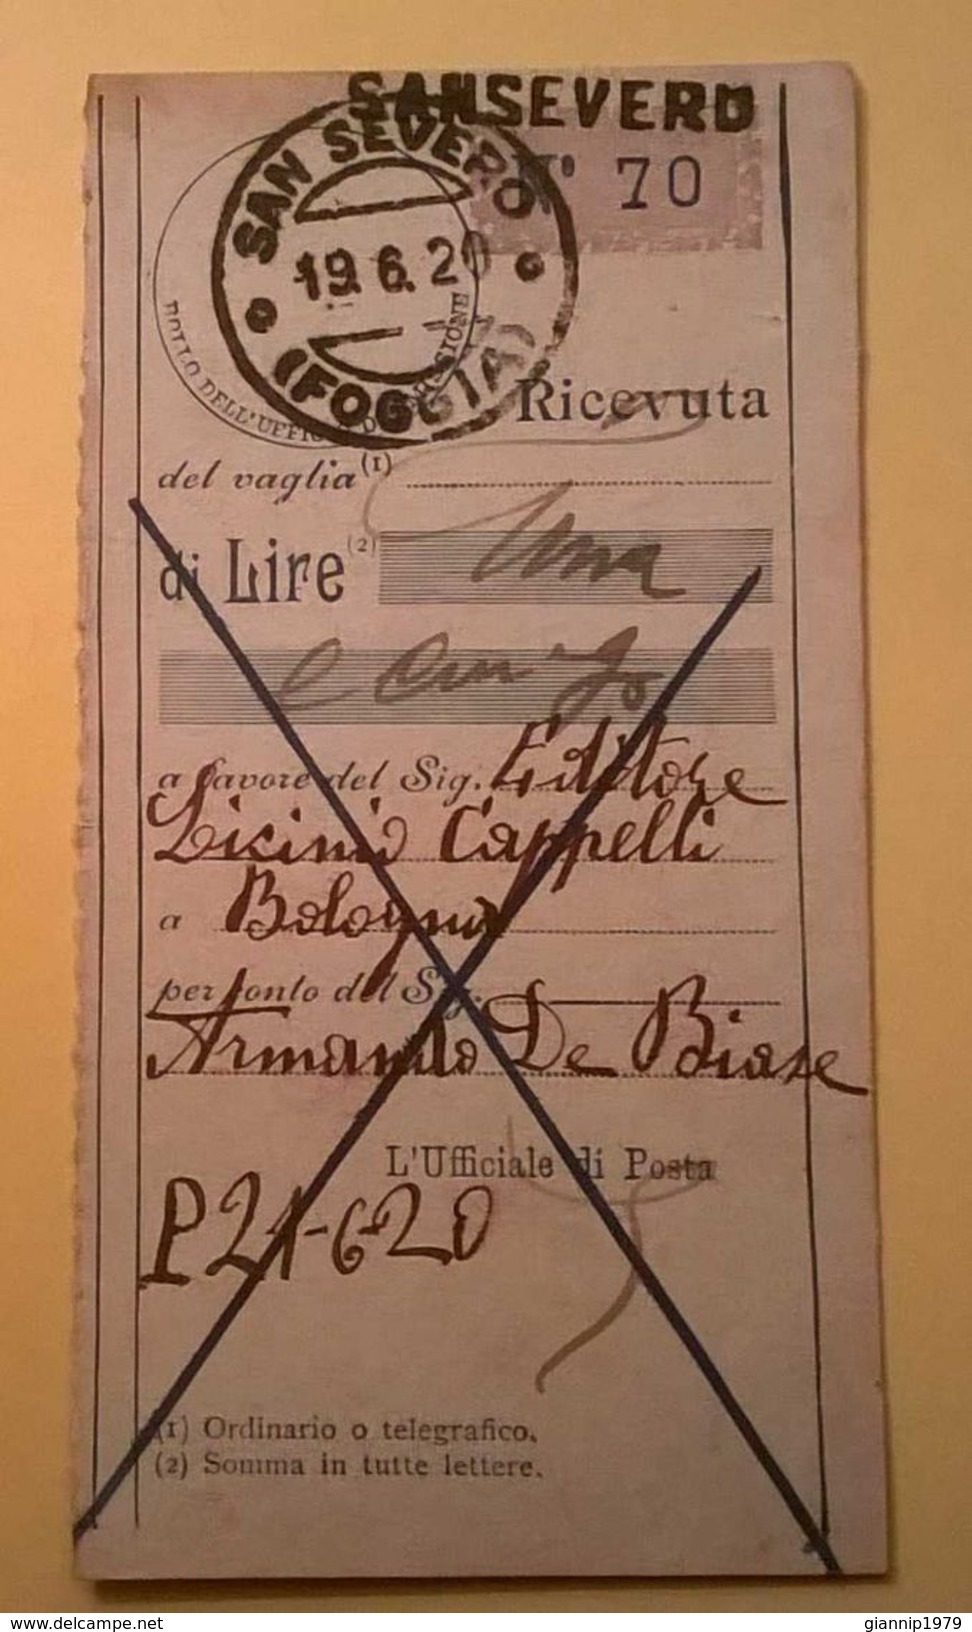 SANSEVERO
N° 70
SAN SEVERO
19.6.20
(FOGGIA)
BOLLO DELL'UFFICIO D'EMISSIONE
Ricevuta
del vaglia (1)
di Lire (2) Una
e
a favore del Sig. Editore
Licinio Cappelli
a Bologna
per conto del Sig.
Armando De Biase
L'Ufficiale di Posta
P 21-6-20
(1) Ordinario o telegrafico.
(2) Somma in tutte lettere.
www.delcampe.net
giannip1979